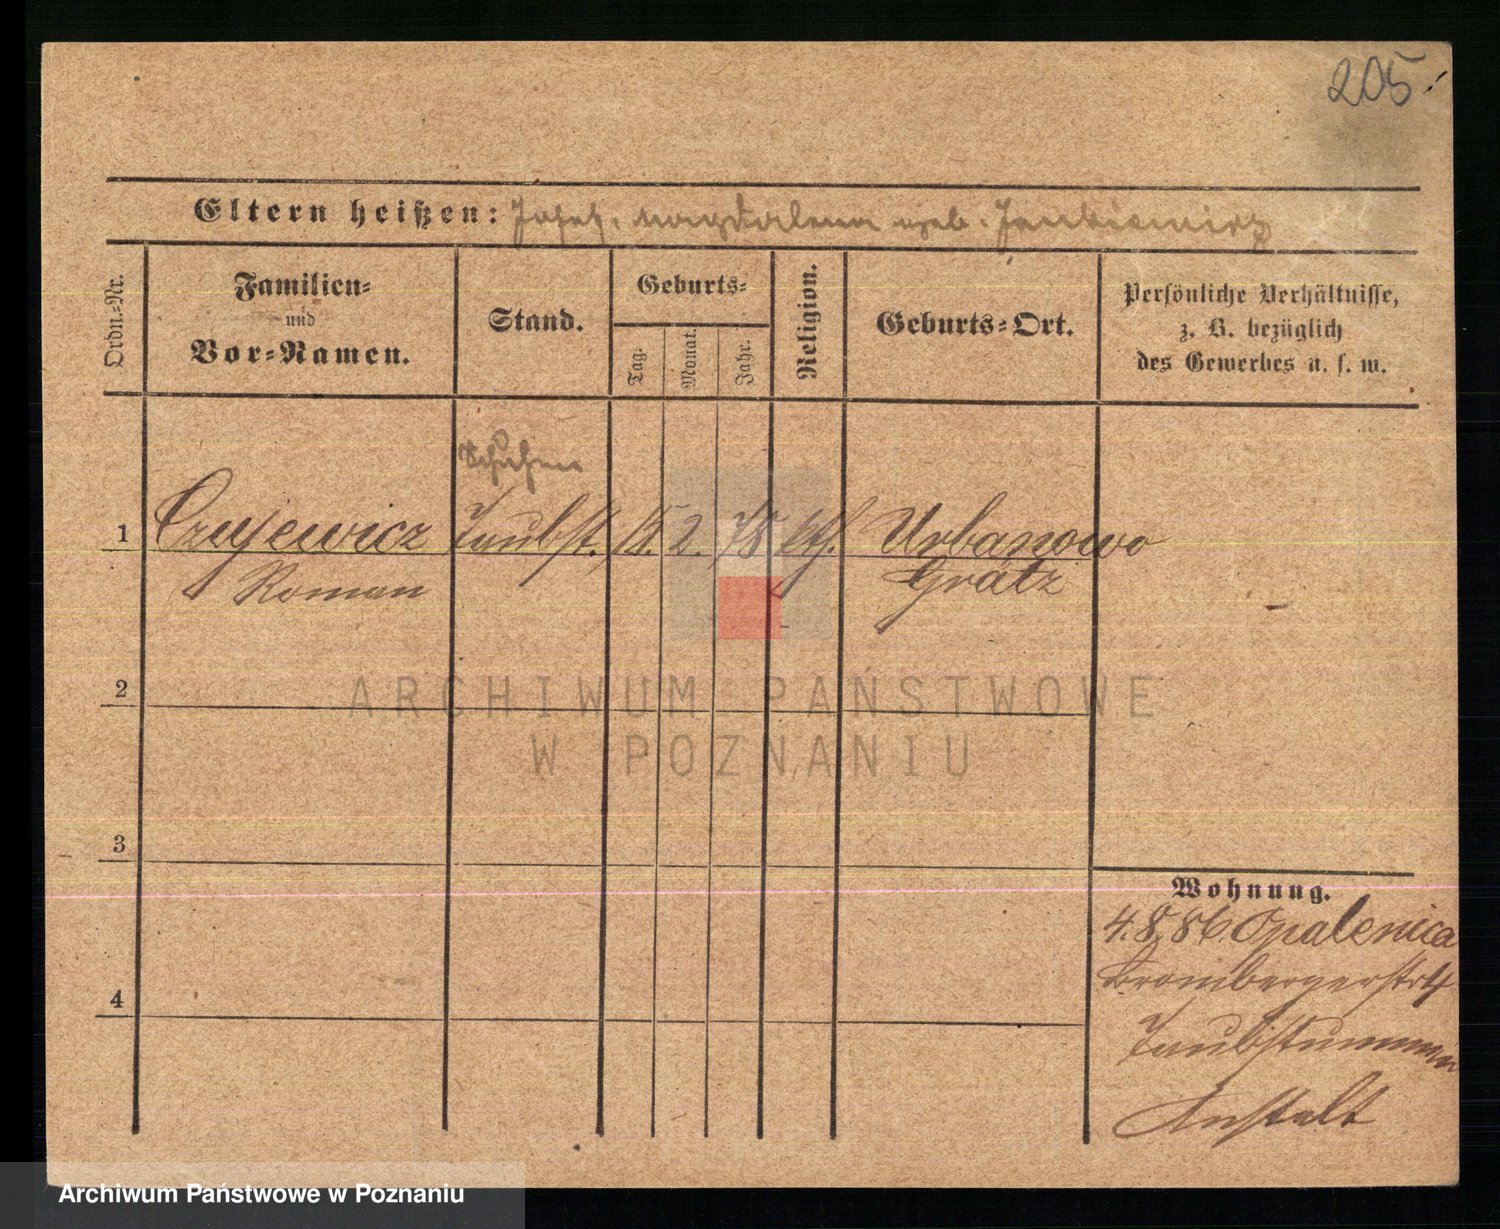 205
Eltern heißen: Josef, Magdalena geb. Jankiewicz
Ordn.-Nr.
Familien-
und
Vor-Namen.
Stand.
Geburts-
Tag.
Monat.
Jahr.
Religion.
Geburts-Ort.
Persönliche Verhältnisse,
z. B. bezüglich
des Gewerbes u. s. w.
Schuhm
1 Czujewicz Taubst. 2. 75 kth. Urbanowo
Roman Grätz
2
3
4
Wohnung.
4.8.86. Opalenica
Brombergerstr 4
Taubstummen
Anstalt
ARCHIWUM PAŃSTWOWE
W POZNANIU
Archiwum Państwowe w Poznaniu